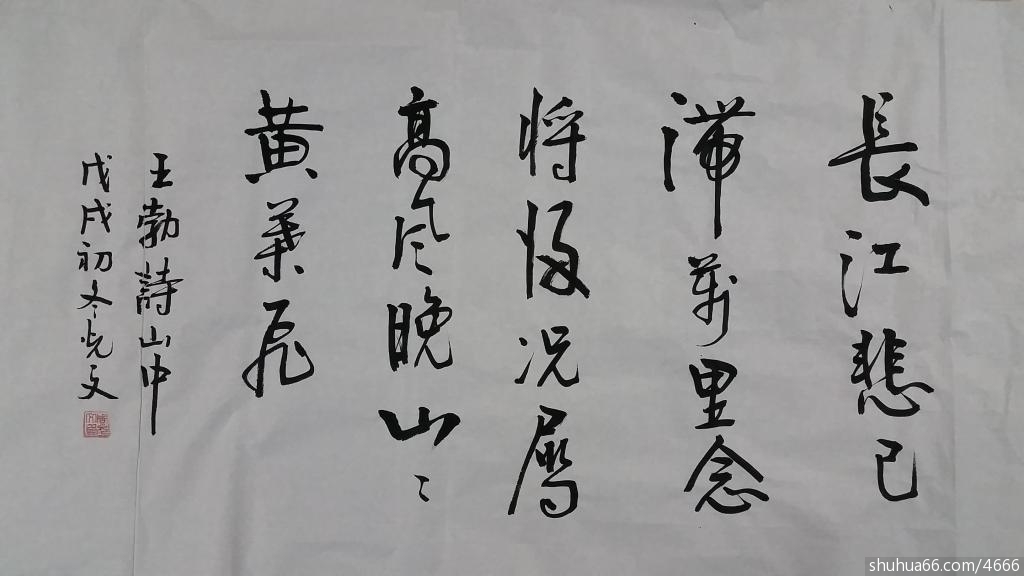 長江悲已
滯萬里念
将歸况屬
高风晚山々
黄葉飛
王勃詩山中
戊戌初冬悦文
shuhua66.com/4666